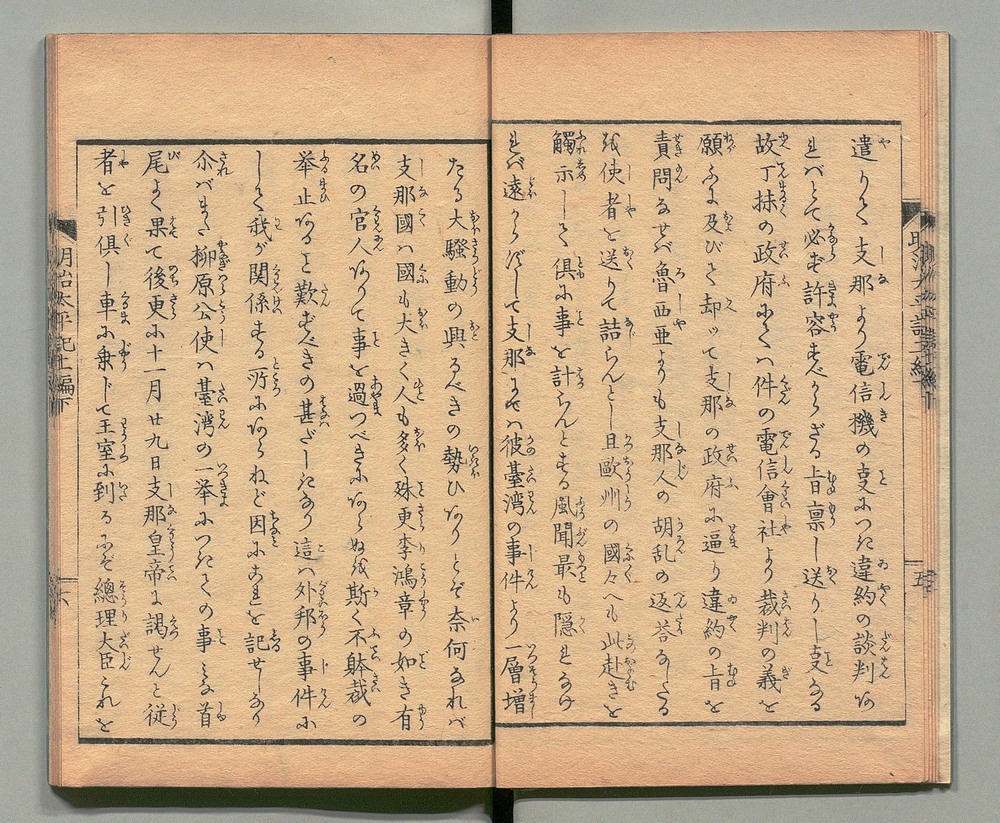 遣りて支那より電信機の叓につき違約の談判あ
れバとて必ず許容すべからざる旨禀し送りし叓ある
故丁抹の政府にてハ件の電信會社より裁判の義を
願ふに及びて却ッて支那の政府に逼り違約の旨を
責問なせバ魯西亜よりも支那人の胡乱の返荅なしたる
を使者を送りて詰らんとし且歐州の國々へも此赴きを
觸示して倶に事を計らんとする風聞最も隠れなけ
れバ遠からずして支那にてハ彼臺湾の事件より一層増
たる大騒動の興るべきの勢ひなりとぞ奈何なれバ
支那國ハ國も大きく人も多く殊更李鴻章の如き有
名の官人ありて事を過つべきにあらぬを斯く不躰裁の
挙止あること歎ずべきの甚だしきなり這ハ外邦の事件に
して我が関係する所にあらねど因にこれを記せしなり
尒バまた柳原公使ハ臺湾の一挙につきての事みな首
尾よく果て後更に十一月廿九日支那皇帝に謁せんと従
者を引倶し車に乗じて王室に到るにぞ總理大臣これを
明治太平記十一編下
五
六